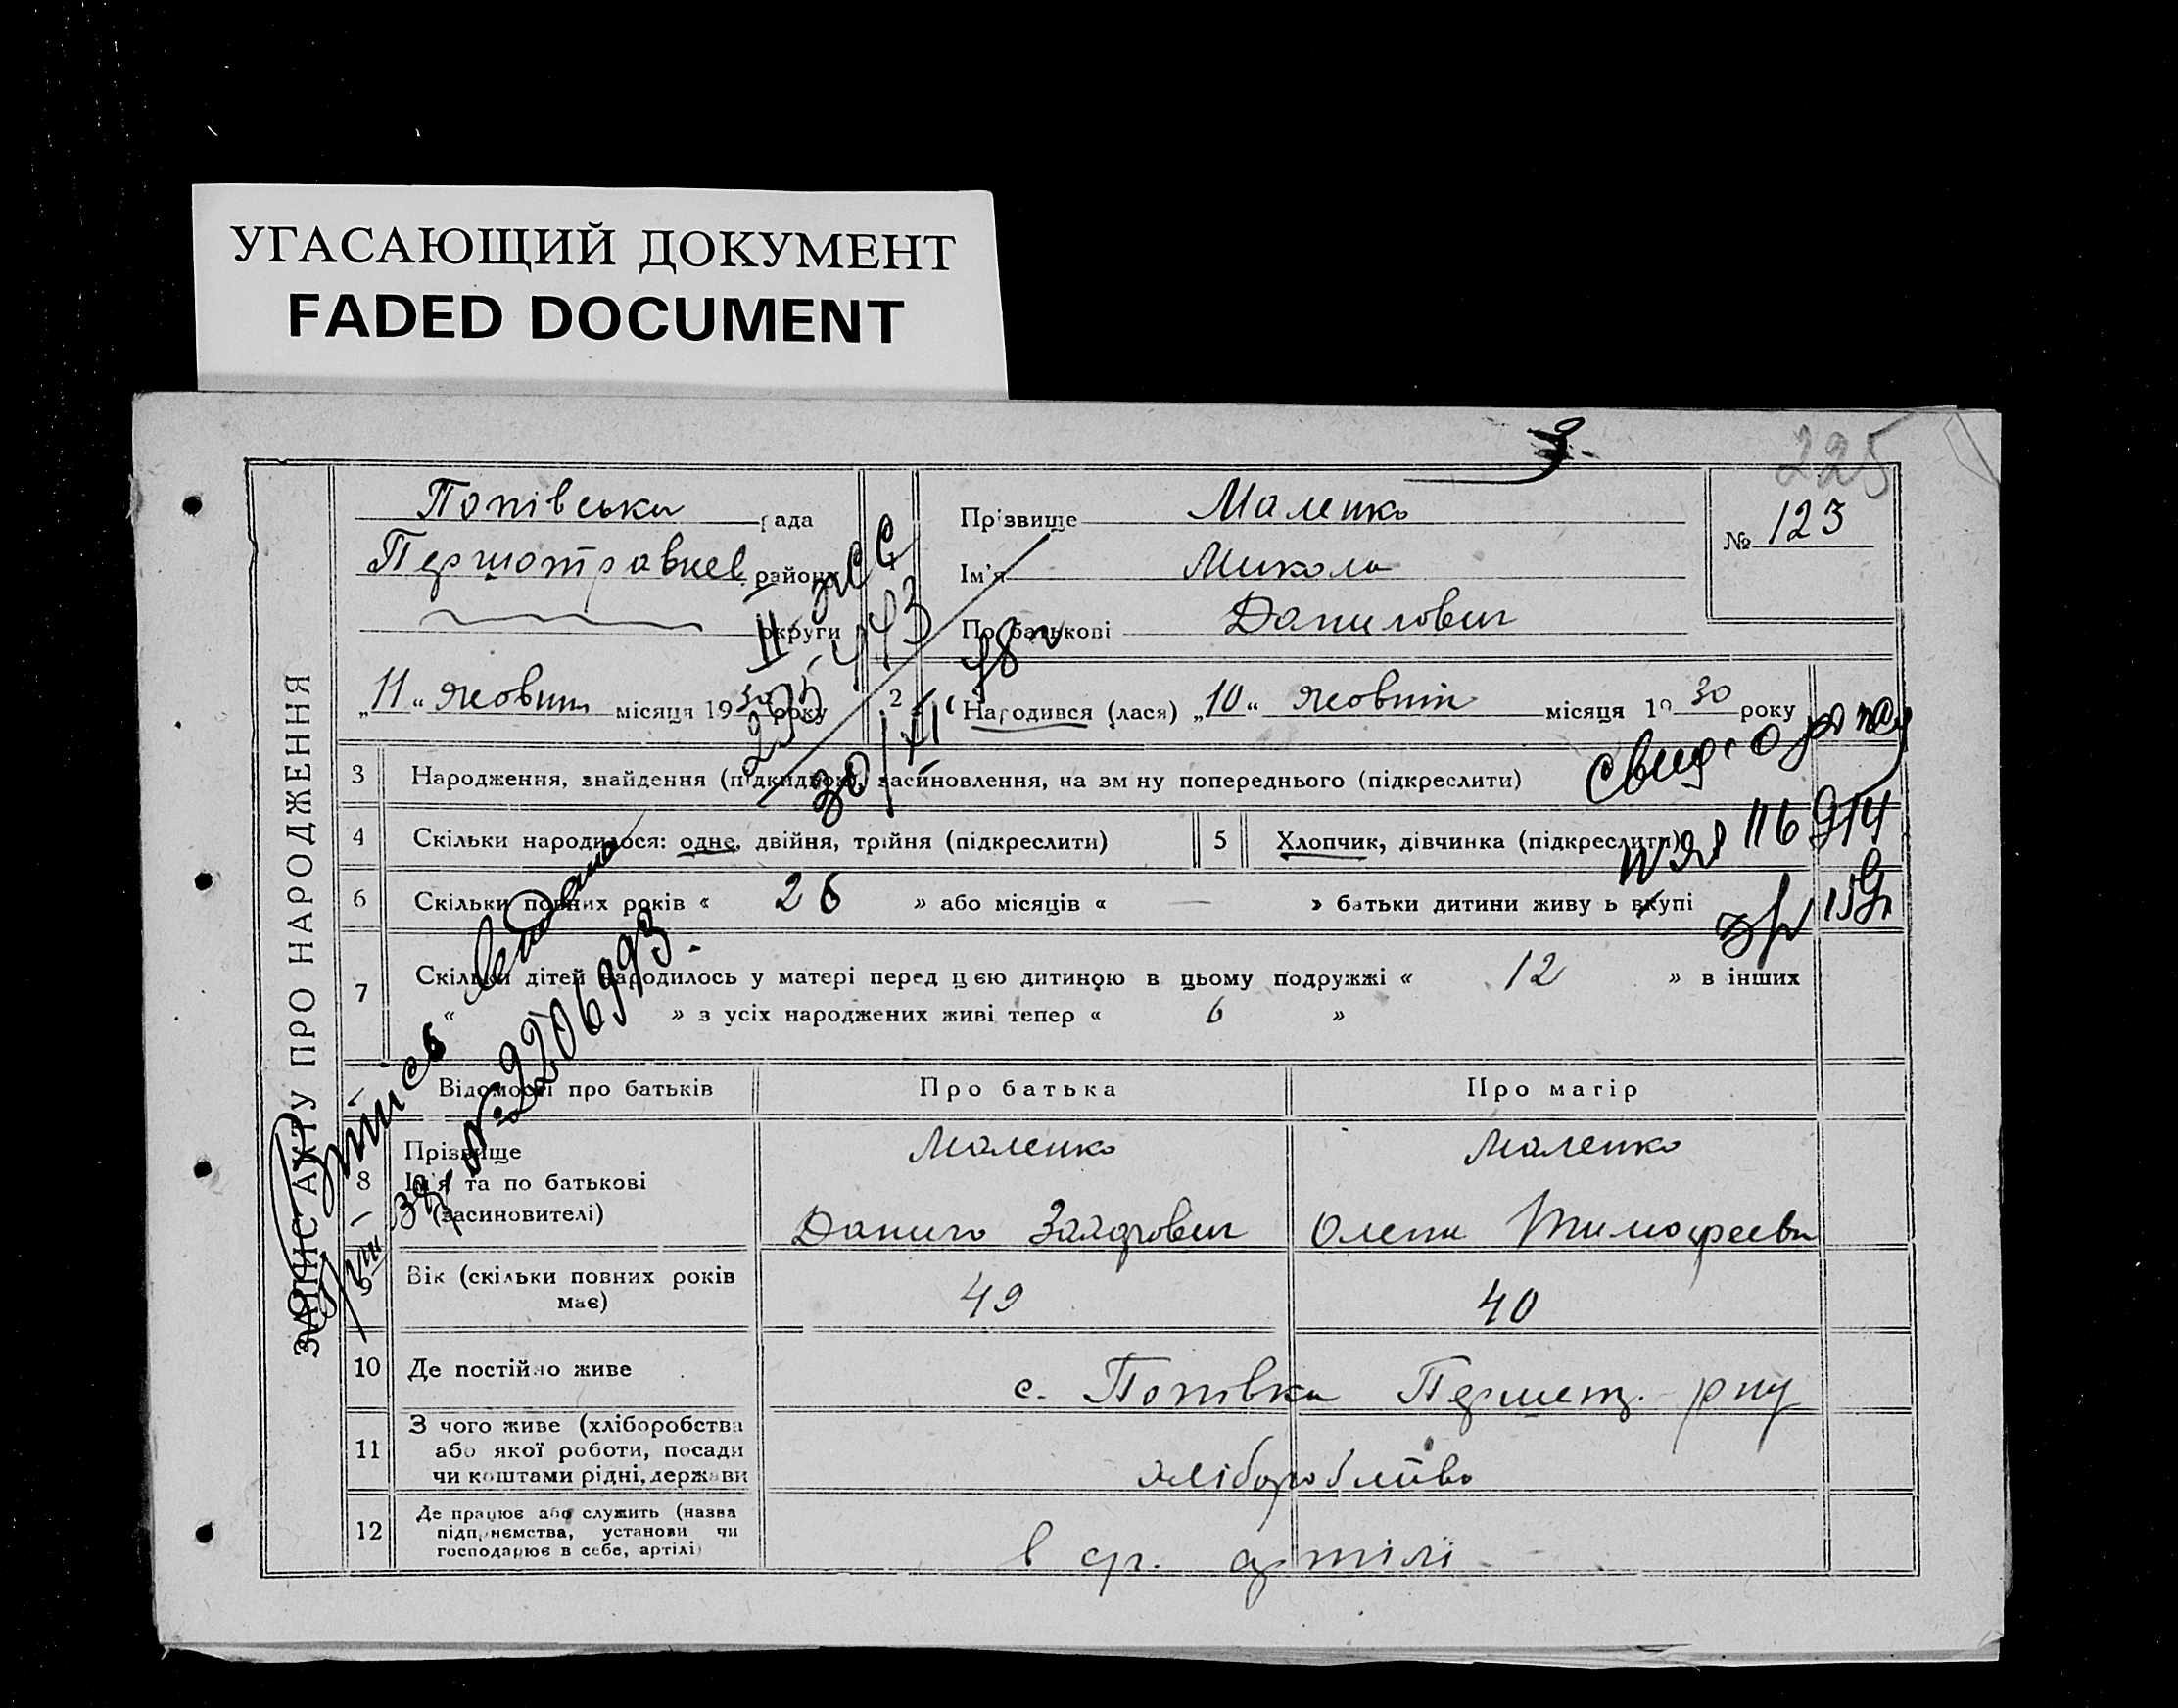 УГАСАЮЩИЙ ДОКУМЕНТ
FADED DOCUMENT
225
ЗАПИС АКТУ ПРО НАРОДЖЕННЯ
Попівська рада
Першотравнев. району
округи
Прізвище Маленко
Ім'я Микола
По батькові Данилович
№ 123
„11“ жовтня місяця 1930 року
2 Народився (лася) „10“ жовтня місяця 1930 року
3 Народження, знайдення (підкидьок), засиновлення, на зміну попереднього (підкреслити)
4 Скільки народилося: одне, двійня, трійня (підкреслити)
5 Хлопчик, дівчинка (підкреслити)
116914
6 Скільки повних років « 26 » або місяців « — » батьки дитини живуть вкупі
7 Скільки дітей народилось у матері перед цією дитиною в цьому подружжі « 12 » в інших
« » з усіх народжених живі тепер « 6 »
№ 2206993.
Відомості про батьків Про батька Про матір
8 Прізвище
Ім'я та по батькові
(засиновителі)
Маленко
Данило Захарович
Маленко
Олена Тимофеевна
9 Вік (скільки повних років має) 49 40
10 Де постійно живе с. Попівка Першотр. р-ну
11 З чого живе (хліборобства
або якої роботи, посади
чи коштами рідні, держави
хліборобство
12 Де працює або служить (назва
підприємства, установи чи
господарює в себе, артілі)
в ср. артілі